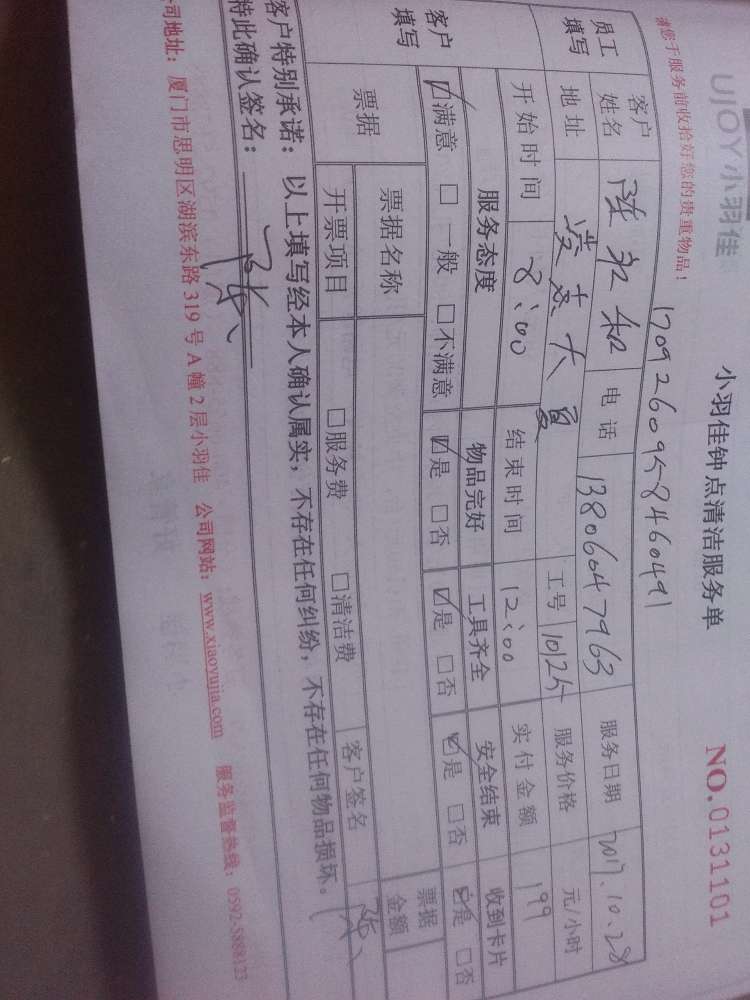 UJOY小羽佳
小羽佳钟点清洁服务单
NO.0131101
请您于服务前收拾好您的贵重物品!
1709260958460491
员工填写
客户姓名 电话 13806047963 服务日期 2017.10.28
地址 大夏 工号 10125 服务价格 元/小时
开始时间 8:00 结束时间 12:00 实付金额 199
客户填写
服务态度 物品完好 工具齐全 安全结束 收到卡片
☑满意 □一般 □不满意 ☑是 □否 ☑是 □否 ☑是 □否 ☑是 □否
票据 票据名称 票据金额
开票项目 □服务费 □清洁费 客户签名
客户特别承诺:以上填写经本人确认属实,不存在任何纠纷,不存在任何物品损坏。
特此确认签名:
公司地址:厦门市思明区湖滨东路319号A幢2层小羽佳 公司网站:www.xiaoyujia.com 服务监督热线:0592-5888123